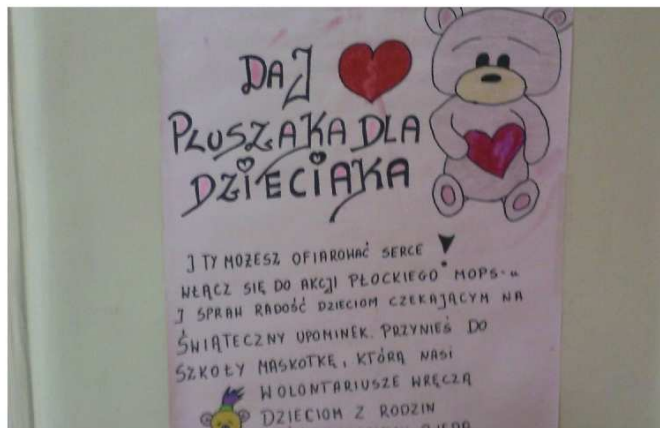 DAJ
PLUSZAKA DLA
DZIECIAKA
I TY MOŻESZ OFIAROWAĆ SERCE!
WŁĄCZ SIĘ DO AKCJI PŁOCKIEGO MOPS-u
I SPRAW RADOŚĆ DZIECIOM CZEKAJĄCYM NA
ŚWIĄTECZNY UPOMINEK. PRZYNIEŚ DO
SZKOŁY MASKOTKĘ, KTÓRĄ NASI
WOLONTARIUSZE WRĘCZĄ
DZIECIOM Z RODZIN